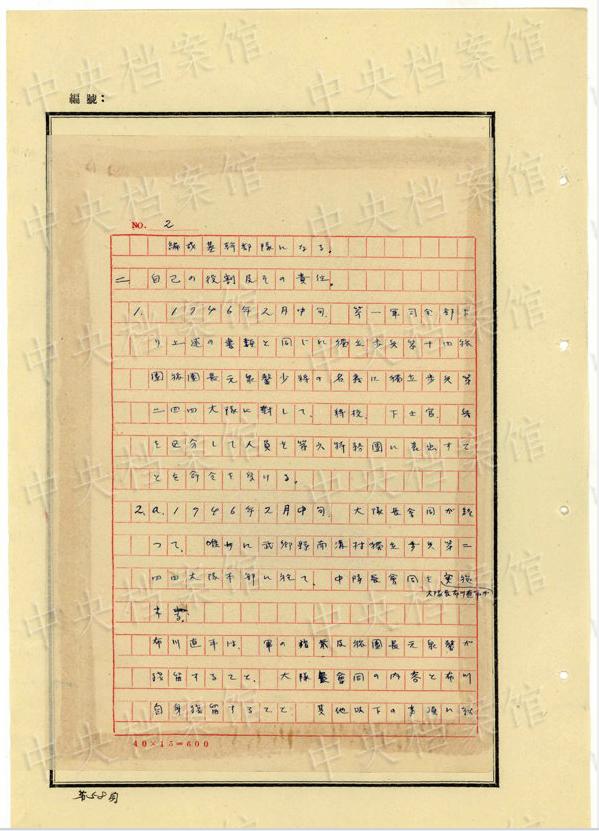 編號：
NO. 2
編成基幹部隊になる。
二 自己の役割及其の責任。
1. 1946年2月中旬、第一軍司令部よ
り上述の書類と同じに独立歩兵第十四旅
團旅團長元泉馨少将の名義に独立歩兵第
二四四大隊に對して、将校、下士官、兵
を区分して人員を第六特務團に表出すこ
とを命令を受ける。
2. a. 1946年2月中旬、大隊長會同が終
つて、武鄉縣南溝村独立歩兵第二
四四大隊本部に於て、中隊長會同を実施
大隊長布川直平
布川直平は、軍の残留及旅團長元泉馨が
残留すること、大隊長會同の内容と布川
自身残留すること其他以下の事項に就
40×15=600
第58頁
中央档案馆